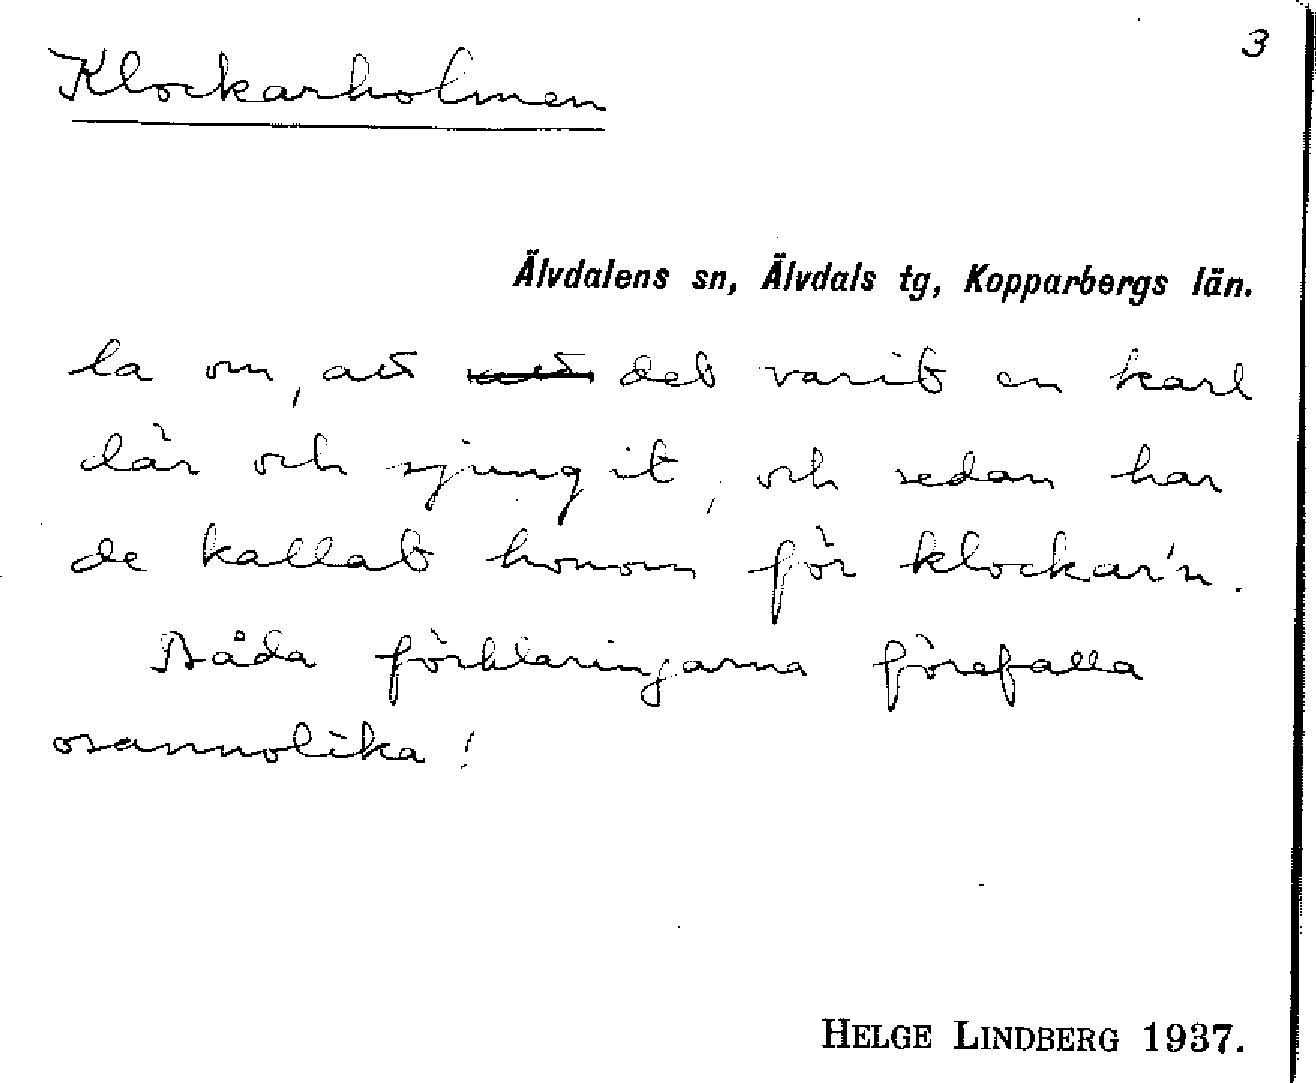 3
Klockarholmen
Älvdalens sn, Älvdals tg, Kopparbergs län.
la om, att det varit en karl
där och sjungit, och sedan har
de kallat honom för klockar'n.
Båda förklaringarna förefalla
osannolika!
HELGE LINDBERG 1937.